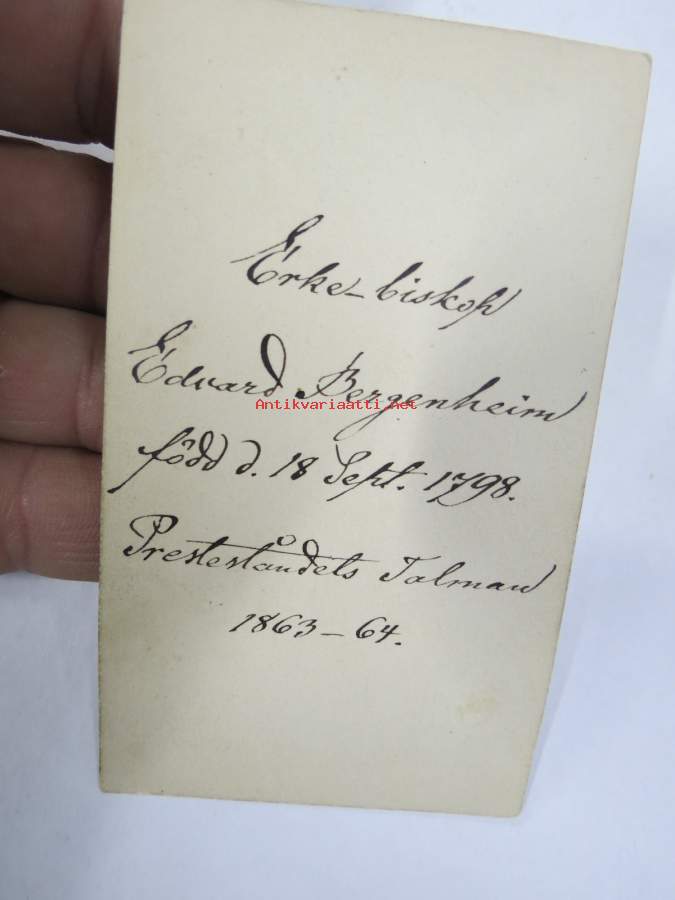 Erke-biskop
Edvard Bergenheim
Antikvariaatti.net
född d. 18 Sept. 1798.
Presteståndets Talman
1863-64.